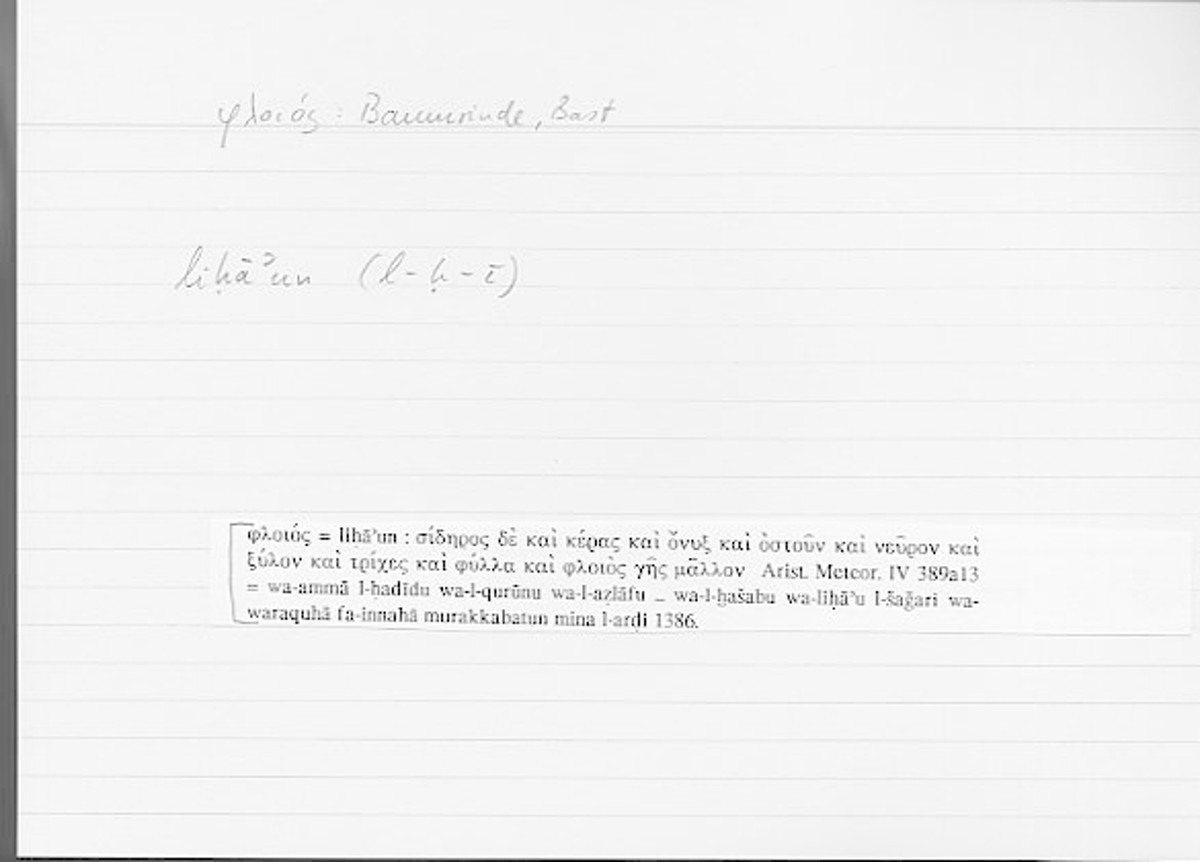 φλοιός : Baumrinde, Bast
liḥāʾun (l-ḥ-ī)
φλοιός = liḥāʾun : σίδηρος δὲ καὶ κέρας καὶ ὄνυξ καὶ ὀστοῦν καὶ νεῦρον καὶ
ξύλον καὶ τρίχες καὶ φύλλα καὶ φλοιὸς γῆς μᾶλλον Arist. Meteor. IV 389a13
= wa-ammā l-ḥadīdu wa-l-qurūnu wa-l-aẓlāfu _ wa-l-ḫašabu wa-liḥāʾu l-šaǧari wa-
waraquhā fa-innahā murakkabatun mina l-arḍi 1386.